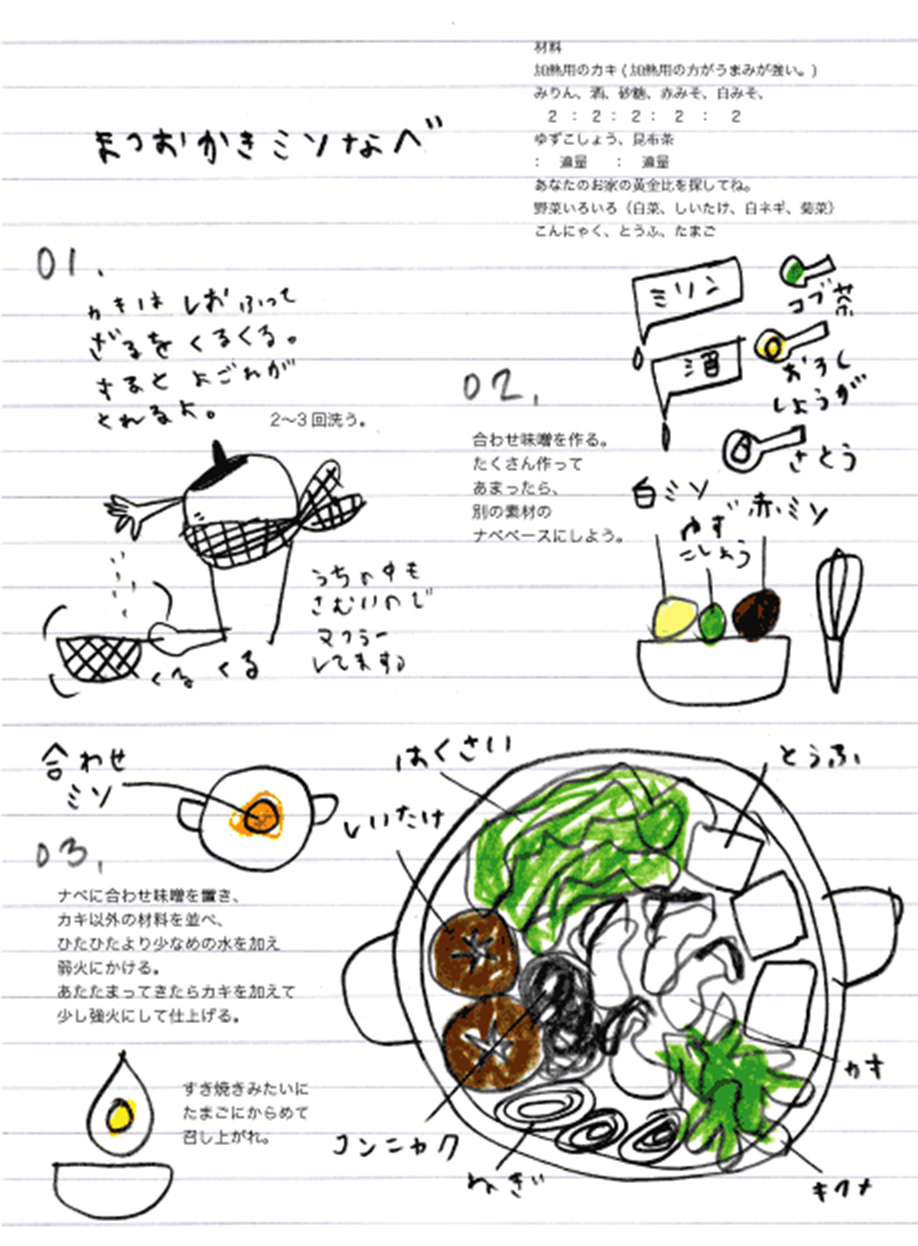 まつおかきミソなべ
材料
加熱用のカキ(加熱用の方がうまみが強い。)
みりん、酒、砂糖、赤みそ、白みそ、
2 : 2 : 2 : 2 : 2
ゆずこしょう、昆布茶
: 適量 : 適量
あなたのお家の黄金比を探してね。
野菜いろいろ(白菜、しいたけ、白ネギ、菊菜)
こんにゃく、とうふ、たまご
01.
かきは しお ふって
ざるを くるくる。
すると よごれが
とれるよ。
2〜3回洗う。
うちの中も
さむいので
マフラー
してます
くる くる
02.
合わせ味噌を作る。
たくさん作って
あまったら、
別の素材の
ナベベースにしよう。
ミリン
コブ茶
酒
おろし
しょうが
さとう
白ミソ
ゆず
こしょう
赤ミソ
合わせ
ミソ
03.
ナベに合わせ味噌を置き、
カキ以外の材料を並べ、
ひたひたより少なめの水を加え
弱火にかける。
あたたまってきたらカキを加えて
少し強火にして仕上げる。
すき焼きみたいに
たまごにからめて
召し上がれ。
はくさい
とうふ
しいたけ
カキ
コンニャク
ねぎ
キクナ